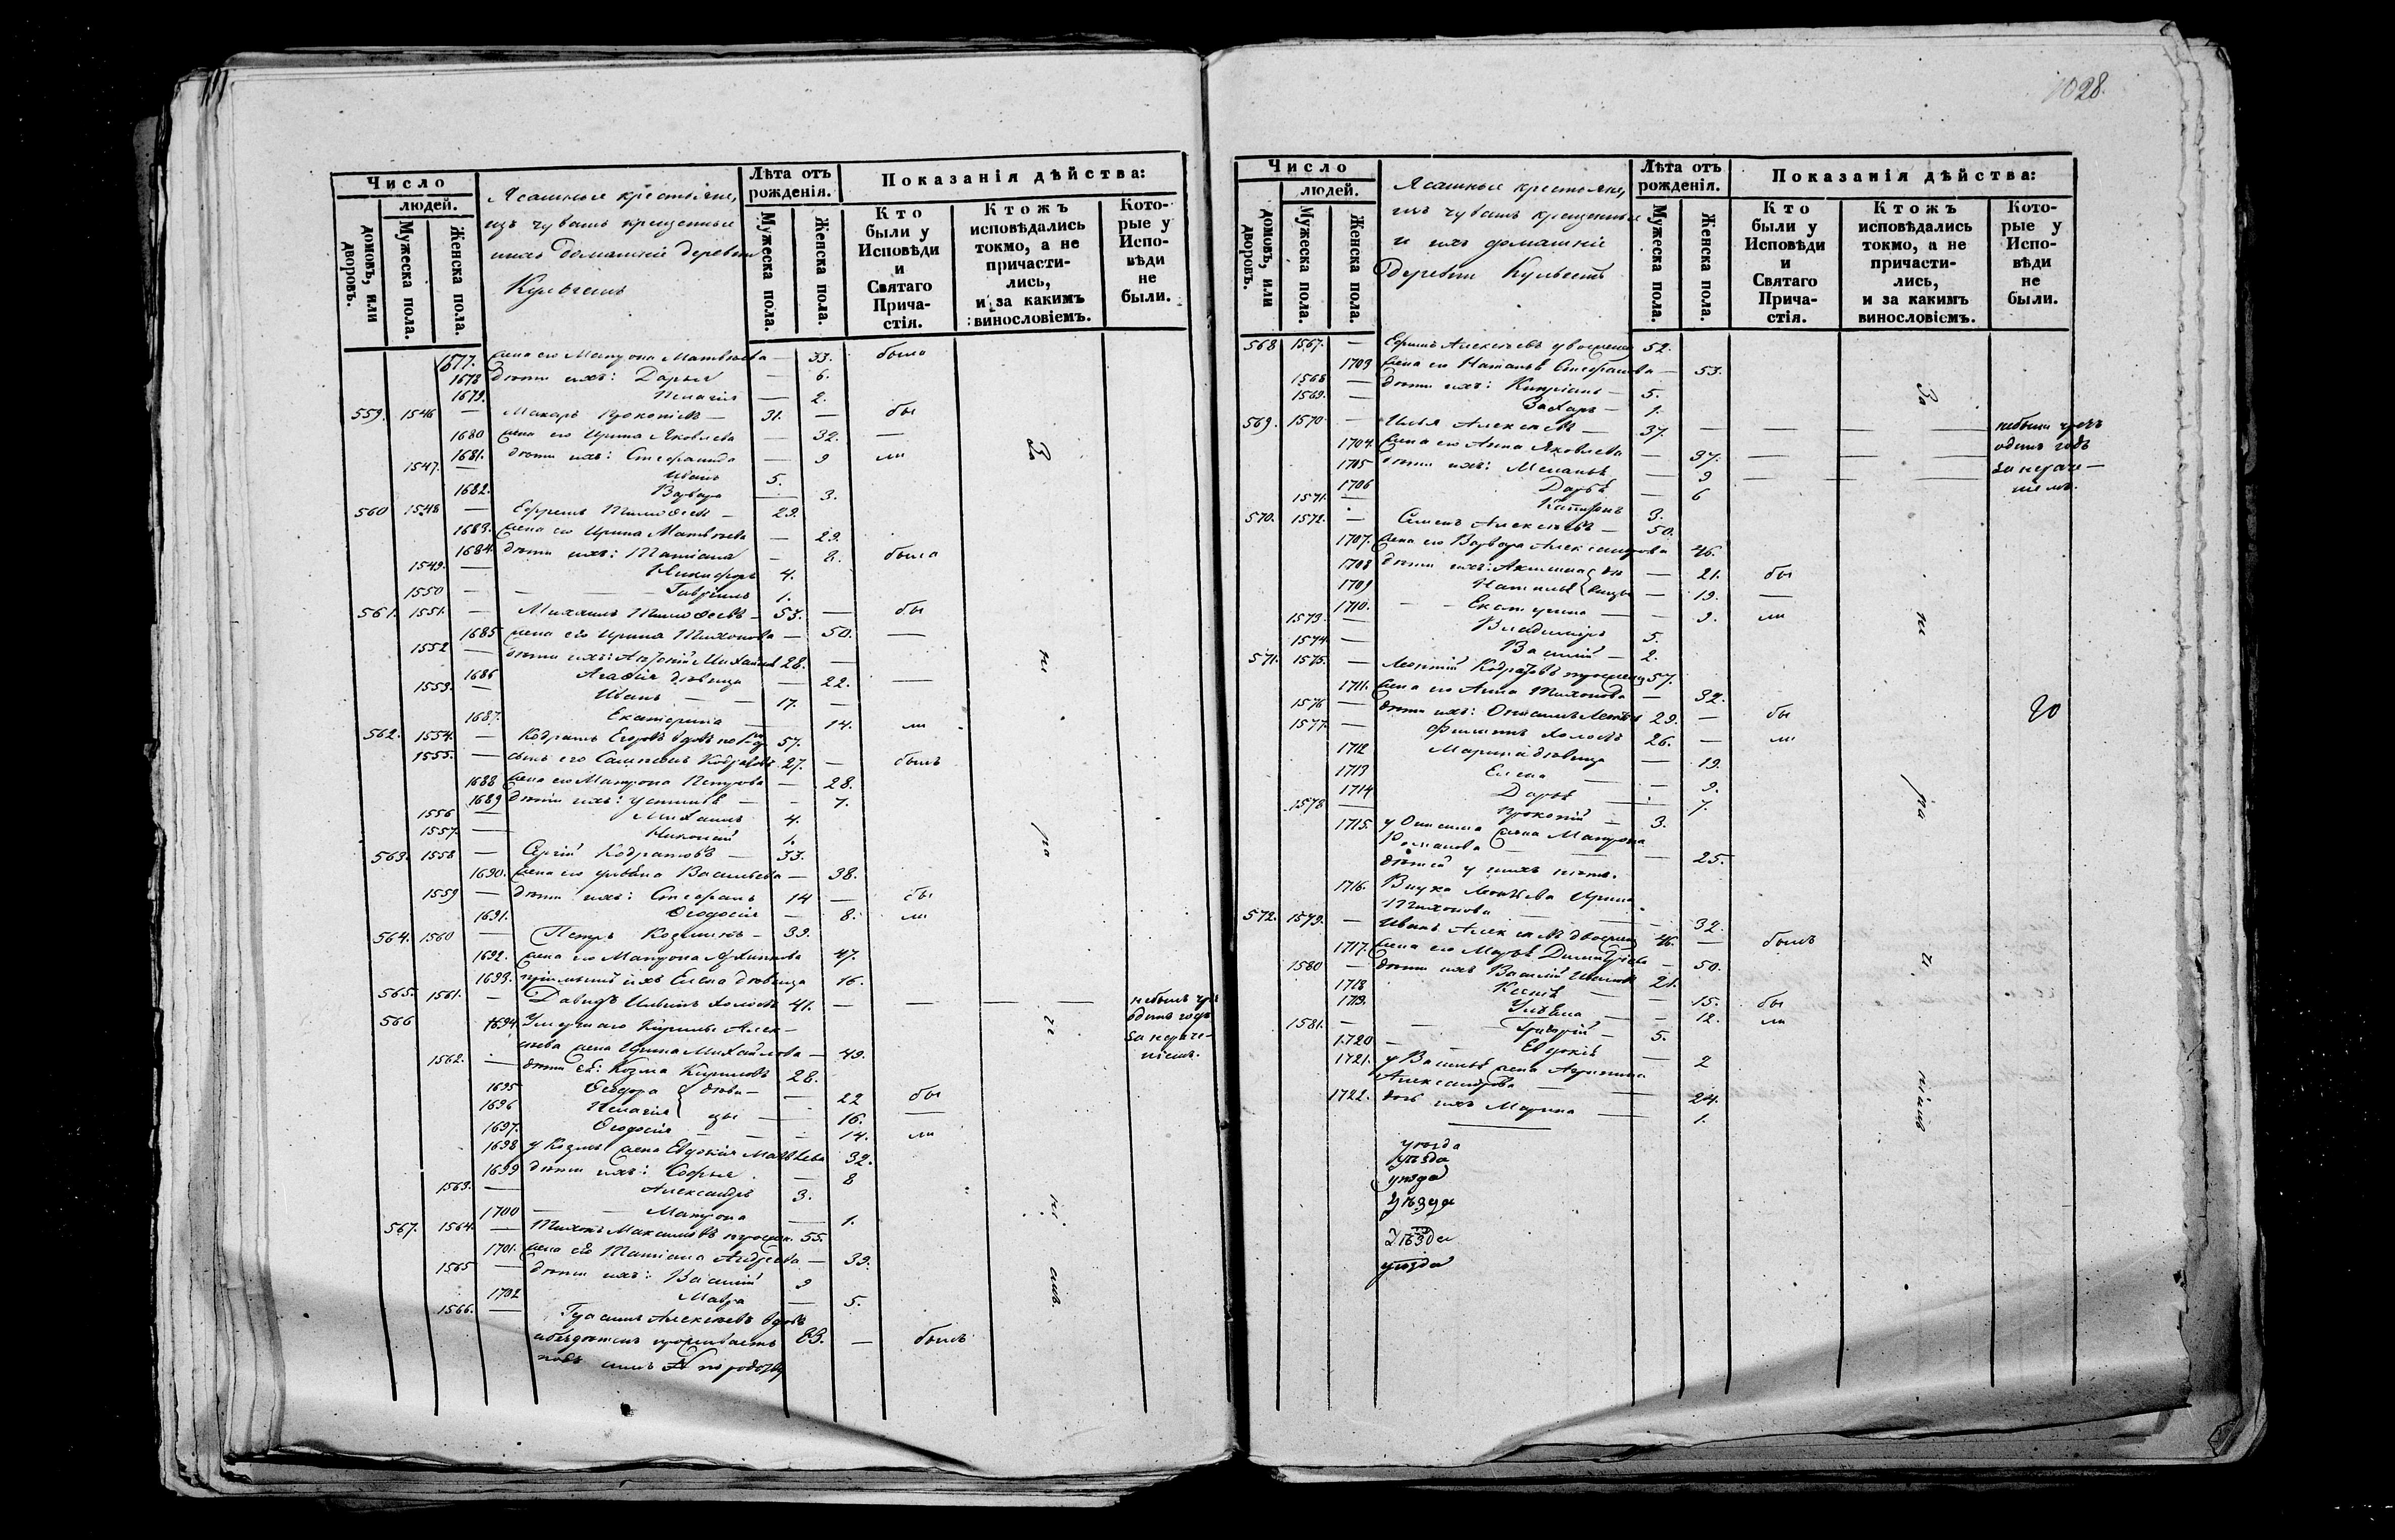 1028.
Число
людей.
домовъ, или дворовъ.
Мужеска пола.
Женска пола.
Ясашные крестьяне,
изъ чувашъ крещенные
ихъ домашніе деревни
Лѣта отъ рожденія.
Мужеска пола.
Женска пола.
Показанія дѣйства:
Кто были у Исповѣди и Святаго Прича-стія.
Ктожъ исповѣдались токмо, а не причасти-лись, и за какимъ винословіемъ.
Кото-рые у Испо-вѣди не были.
1677. жена его Матрона Матвѣева — 33. была
1678 дѣти ихъ: Дарья — 6.
1679. Пелагія — 2.
559. 1546 — Макаръ Прокопіевъ — 31. — бы
1680 жена его Ирина Яковлева — 32. —
1681. дѣти ихъ: Стефанида — 9 ли
1547. — Иванъ 5.
1682. Варвара — 3.
560 1548 — Ефремъ Тимофеевъ — 29.
1683. жена его Ирина Матвѣева — 29.
1684. дѣти ихъ: Татіана — 8. была
1549. — Никифоръ 4.
1550 — — Гавріилъ 1.
561. 1551. — Михаилъ Тимофеевъ — 53. — бы
1685 жена его Ирина Тихонова — 50. —
1552 — дѣти ихъ: Михайловъ 28. —
1686 Агафія дѣвица — 22. —
1553. — Иванъ — 17. —
1687. Екатерина — 14. ли
562. 1554. — Кодратъ Егоровъ вдовъ по 57.
1555. — сынъ его Сампсонъ Кодратовъ 27. — былъ
1688 жена его Матрона Петрова — 28.
1689 дѣти ихъ: Устинья — 7.
1556 — Михаилъ 4.
1557. — Николай 1.
563. 1558 — Сергій Кодратовъ — 33.
1690. жена его Васильева — 38.
1559 — дѣти ихъ: Стефанъ 14 — бы
1691. Феодосія — 8. ли
564. 1560 — Петръ Козминъ — 39.
1692. жена его Матрона Архипова 47.
1693. ихъ Елена дѣвица 16.
565. 1561. — Давидъ Ильинъ холостъ 41. — — — небылъ чрезъ
одинъ годъ
за нераче-
ніемъ.
566 1694. Умершаго Кирилы Алек-
сѣева жена Ирина Михайлова — 49.
1562. — дѣти ея: Козма Кириловъ 28.
1695 Феодора дѣви- — 22 бы
1696 Пелагія цы — 16. —
1697. Феодосія — — 14. ли
1698 у Козмы жена Евдокія Матвѣева 32.
1699 дѣти ихъ: Софья — 8
1563. — Александръ 3.
1700 — Матрона — 1.
567. 1564. — Тихонъ Максимовъ 55.
1701. жена его Татіана Андреева — 39.
1565 — дѣти ихъ: Василій 9
1702 Мавра — 5.
1566. — Герасимъ Алексѣевъ вдовъ
проживаетъ 83. — былъ
За не ра че ні емъ.
Число
людей.
домовъ, или дворовъ.
Мужеска пола.
Женска пола.
Ясашные крестьяне,
изъ чувашъ крещенные
и ихъ домашніе
деревни
Лѣта отъ рожденія.
Мужеска пола.
Женска пола.
Показанія дѣйства:
Кто были у Исповѣди и Святаго Прича-стія.
Ктожъ исповѣдались токмо, а не причасти-лись, и за какимъ винословіемъ.
Кото-рые у Испо-вѣди не были.
568 1567. — Ефимъ Алексѣевъ 52.
1703 жена его Наталья Стефанова — 53.
1568 — дѣти ихъ: Кипріанъ — 5.
1569. — Захаръ — 1.
569. 1570 — Илья Алексѣевъ — 37. — — — небыли чрезъ
1704. жена его Анна Яковлева — 37. — — одинъ годъ
1705 дѣти ихъ: Меланья — 9 — — за нераче-
1706 Дарья — 6 ніемъ.
1571. — 3.
570. 1572. — Семенъ Алексѣевъ — 50.
1707. жена его Варвара Александрова 46.
1708 дѣти ихъ: Акилина дѣ — 21. бы
1709 Наталья вицы — 19. —
1710. — Екатерина — 9. ли
1573. — Владимиръ 5.
1574. — Василій — 2.
571. 1575. — Леонтій Кодратовъ 57.
1711. жена его Анна Тихонова — 32.
1576 — дѣти ихъ: Онисимъ 29. — бы
1577. — Филиппъ холостъ 26. — ли
1712 Марина дѣвица — 19.
1713 Елена — 9.
1714 Дарья — 7.
1578 — Прокопій — 3.
1715. у Онисима жена Матрона
Романова — 25.
дѣтей у нихъ нѣтъ.
1716. Внука Ирина
Тихонова — 32.
572. 1579. — Иванъ Алексѣевъ 46. — былъ
1717. жена его Марья Димитріева — 50.
1580 — дѣти ихъ Василій Ивановъ 21.
1718 — 15. бы
1719. Ульяна — 12. ли
1581. — — Григорій — 5.
1720 — Евдокія — 2
1721. у Василья жена Агрипина
Александрова — 24.
1722. дочь ихъ Марина — 1.
За не ра че ніемъ
уѣзда
уѣзда
уѣзда
уѣзда
уѣзда
уѣзда